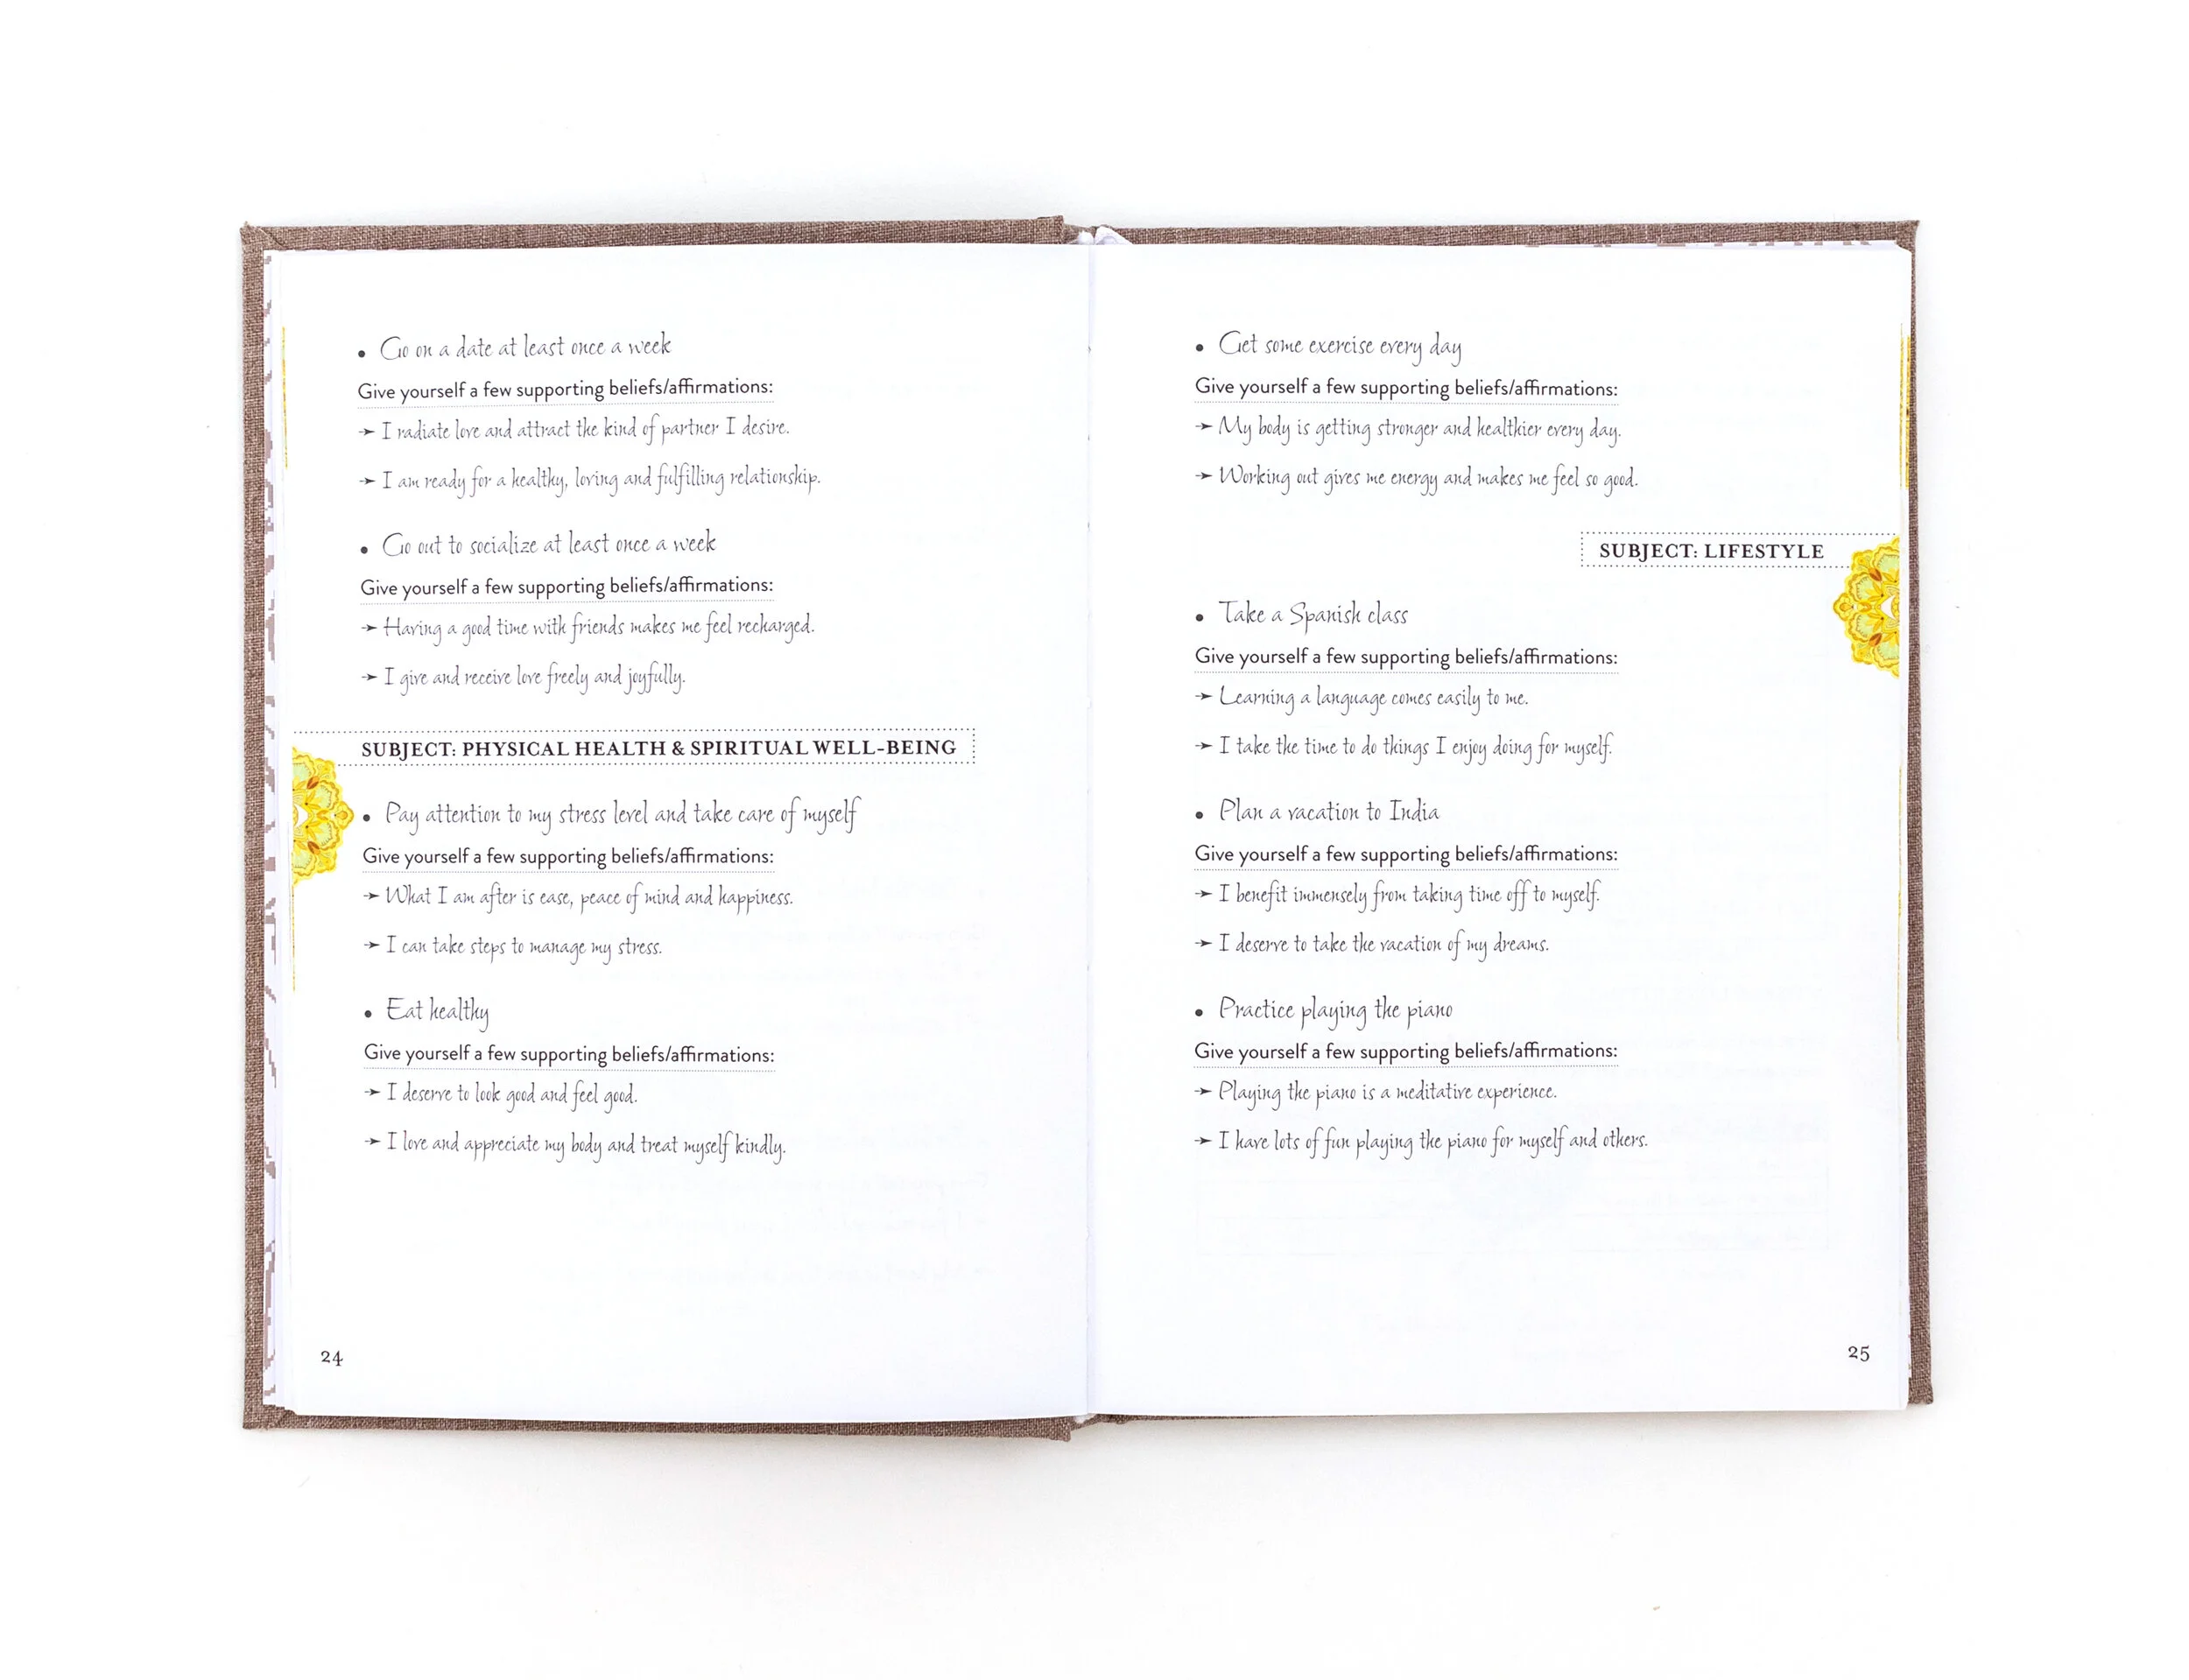 • Go on a date at least once a week
Give yourself a few supporting beliefs/affirmations:
➤ I radiate love and attract the kind of partner I desire.
➤ I am ready for a healthy, loving and fulfilling relationship.
• Go out to socialize at least once a week
Give yourself a few supporting beliefs/affirmations:
➤ Having a good time with friends makes me feel recharged.
➤ I give and receive love freely and joyfully.
SUBJECT: PHYSICAL HEALTH & SPIRITUAL WELL-BEING
• Pay attention to my stress level and take care of myself
Give yourself a few supporting beliefs/affirmations:
➤ What I am after is ease, peace of mind and happiness.
➤ I can take steps to manage my stress.
• Eat healthy
Give yourself a few supporting beliefs/affirmations:
➤ I deserve to look good and feel good.
➤ I love and appreciate my body and treat myself kindly.
24
• Get some exercise every day
Give yourself a few supporting beliefs/affirmations:
➤ My body is getting stronger and healthier every day.
➤ Working out gives me energy and makes me feel so good.
SUBJECT: LIFESTYLE
• Take a Spanish class
Give yourself a few supporting beliefs/affirmations:
➤ Learning a language comes easily to me.
➤ I take the time to do things I enjoy doing for myself.
• Plan a vacation to India
Give yourself a few supporting beliefs/affirmations:
➤ I benefit immensely from taking time off to myself.
➤ I deserve to take the vacation of my dreams.
• Practice playing the piano
Give yourself a few supporting beliefs/affirmations:
➤ Playing the piano is a meditative experience.
➤ I have lots of fun playing the piano for myself and others.
25